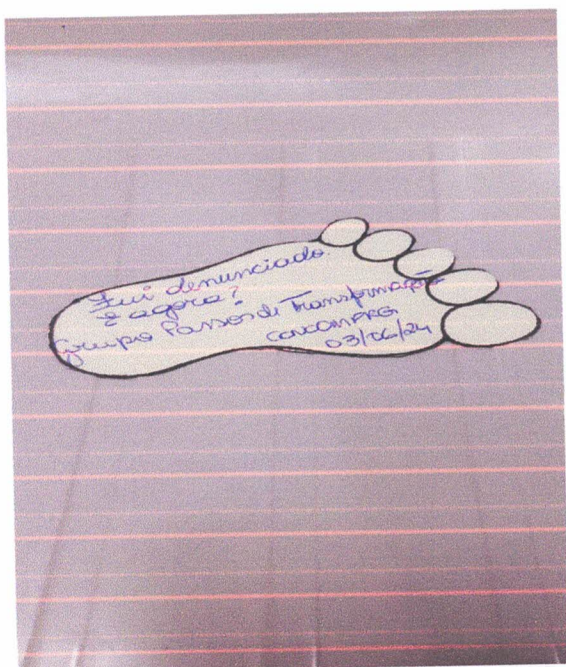 Fui denunciado.
E agora?
Grupo Passos de Transformação
03/06/24